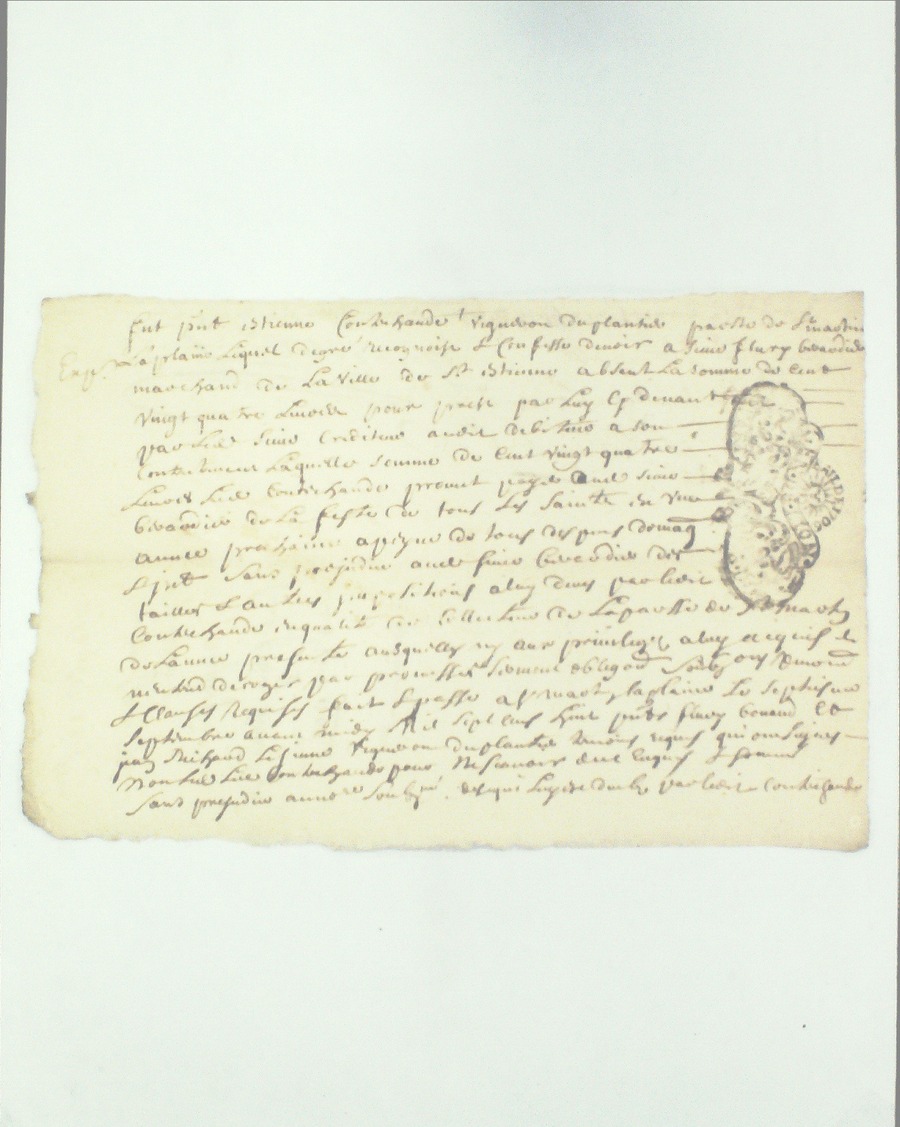 fut pnt Estienne Contechande vigneron du plantier parsse de St martin
Exp. La plaine Lequel de gré reconnoist & Confesse devoir a sieur fleury beraudier
marchand de La ville de St Estienne absent La somme de Cent
vingt quatre Livres pour prest par Luy Cy devant
par Led sieur Crediteur audit debiteur a son
Contentement Laquelle somme de Cent vingt quatre
Livres Led Contechande promet payer aud sieur
beraudier de La feste de tous Les Saints en une
année prochaine a peyne de tous despens domag
& jnt Sans prejudice aud sieur beraudier des
tailles & autres jmpositions a luy dues par ledit
Contechande en qualité de Collecteur de La parsse de St martin
de Lannee presente ausquelles ny aux privileges a luy acquis il
nentend deroger par promesses serment obligaon
& Clauses Requises fait & passé a St martin la plaine Le septieme
septembre avant midy Mil sept Cens huit pnts fleury
jean Richard vigneron du plantier temoins requis qui ont signes
non Led Contechande pour ne scavoir enquis & sommé
Sans prejudice par ledit Contechande